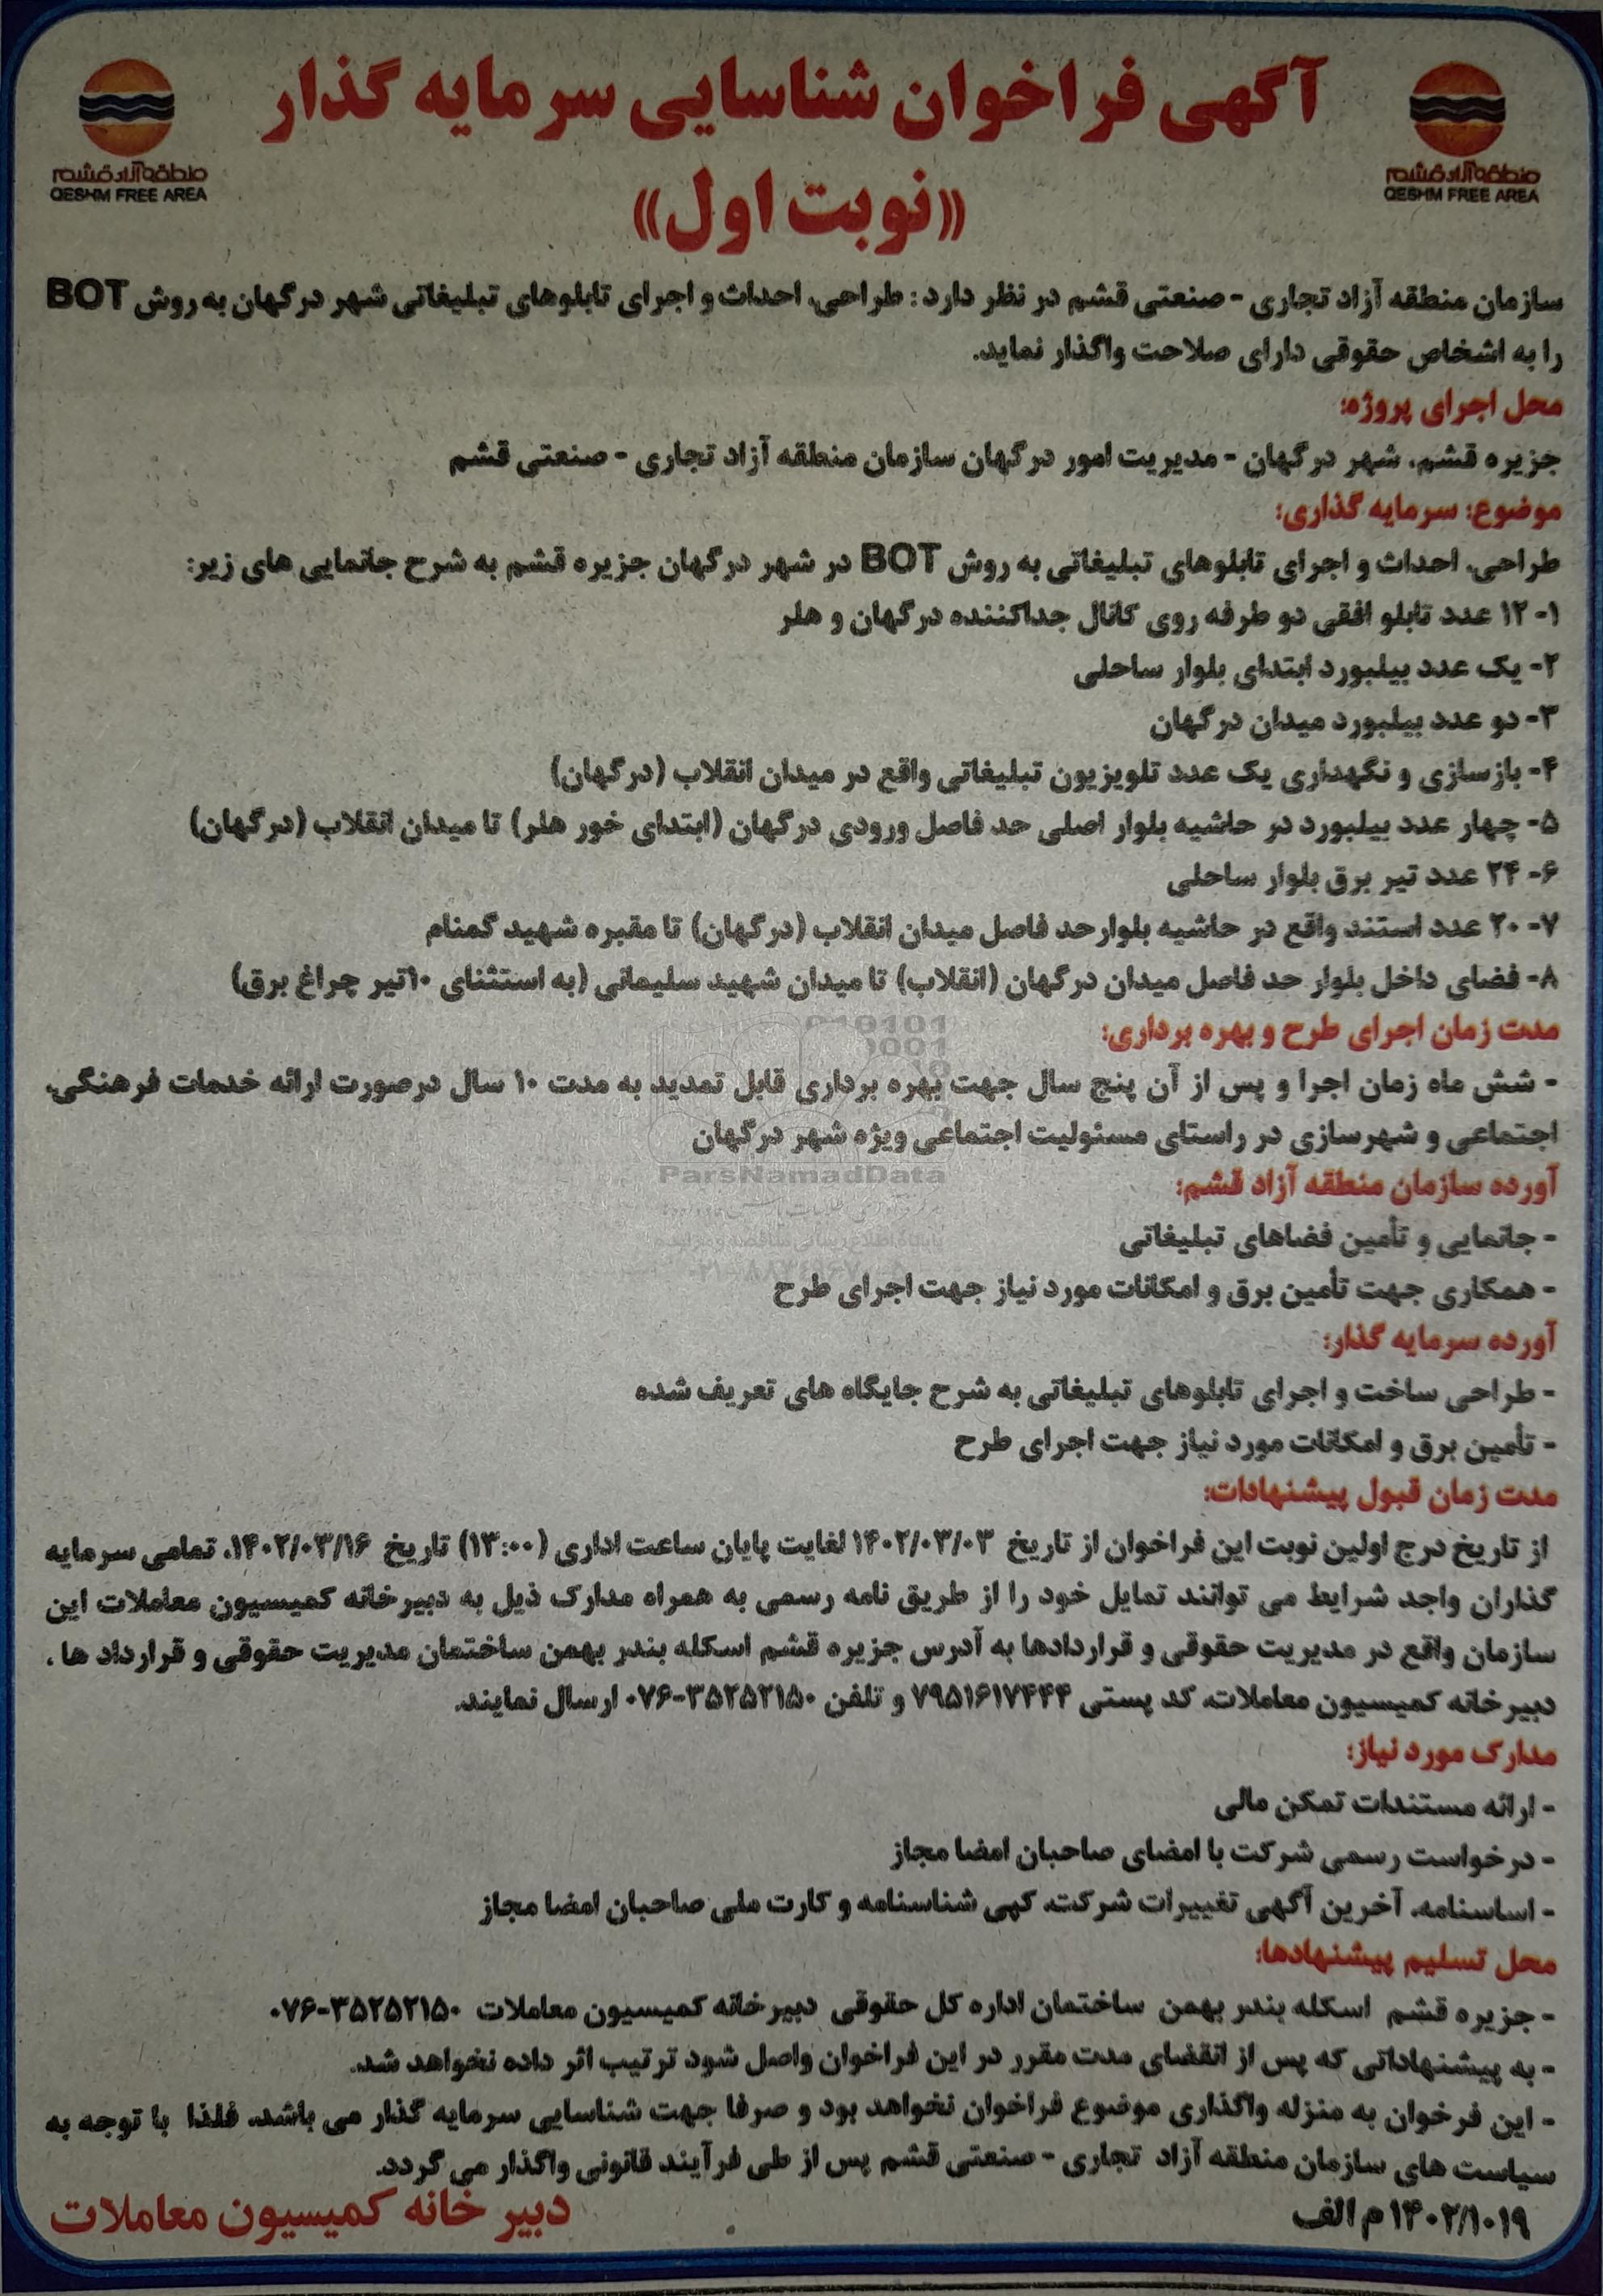 آگهی فراخوان شناسایی سرمایه گذار
منطقه آزاد قشم
QESHM FREE AREA
منطقه آزاد قشم
QESHM FREE AREA
«نوبت اول»
سازمان منطقه آزاد تجاری - صنعتی قشم در نظر دارد : طراحی، احداث و اجرای تابلوهای تبلیغاتی شهر درگهان به روش BOT
را به اشخاص حقوقی دارای صلاحت واگذار نماید.
محل اجرای پروژه:
جزیره قشم، شهر درگهان - مدیریت امور درگهان سازمان منطقه آزاد تجاری - صنعتی قشم
موضوع: سرمایه گذاری:
طراحی، احداث و اجرای تابلوهای تبلیغاتی به روش BOT در شهر درگهان جزیره قشم به شرح جانمایی های زیر:
۱- ۱۲ عدد تابلو افقی دو طرفه روی کانال جداکننده درگهان و هلر
۲- یک عدد بیلبورد ابتدای بلوار ساحلی
۳- دو عدد بیلبورد میدان درگهان
۴- بازسازی و نگهداری یک عدد تلویزیون تبلیغاتی واقع در میدان انقلاب (درگهان)
۵- چهار عدد بیلبورد در حاشیه بلوار اصلی حد فاصل ورودی درگهان (ابتدای خور هلر) تا میدان انقلاب (درگهان)
۶- ۲۴ عدد تیر برق بلوار ساحلی
۷- ۲۰ عدد استند واقع در حاشیه بلوارحد فاصل میدان انقلاب (درگهان) تا مقبره شهید گمنام
۸- فضای داخل بلوار حد فاصل میدان درگهان (انقلاب) تا میدان شهید سلیمانی (به استثنای ۱۰تیر چراغ برق)
مدت زمان اجرای طرح و بهره برداری:
- شش ماه زمان اجرا و پس از آن پنج سال جهت بهره برداری قابل تمدید به مدت ۱۰ سال درصورت ارائه خدمات فرهنگی،
اجتماعی و شهرسازی در راستای مسئولیت اجتماعی ویژه شهر درگهان
ParsNamadData
آورده سازمان منطقه آزاد قشم:
- جانمایی و تأمین فضاهای تبلیغاتی
- همکاری جهت تأمین برق و امکانات مورد نیاز جهت اجرای طرح
آورده سرمایه گذار:
- طراحی ساخت و اجرای تابلوهای تبلیغاتی به شرح جایگاه های تعریف شده
- تأمین برق و امکانات مورد نیاز جهت اجرای طرح
مدت زمان قبول پیشنهادات:
از تاریخ درج اولین نوبت این فراخوان از تاریخ ۱۴۰۲/۰۳/۰۳ لغایت پایان ساعت اداری (۱۳:۰۰) تاریخ ۱۴۰۲/۰۳/۱۶، تمامی سرمایه
گذاران واجد شرایط می توانند تمایل خود را از طریق نامه رسمی به همراه مدارک ذیل به دبیرخانه کمیسیون معاملات این
سازمان واقع در مدیریت حقوقی و قراردادها به آدرس جزیره قشم اسکله بندر بهمن ساختمان مدیریت حقوقی و قرارداد ها ،
دبیرخانه کمیسیون معاملات، کد پستی ۷۹۵۱۶۱۷۴۴۴ و تلفن ۳۵۲۵۲۱۵۰-۰۷۶ ارسال نمایند.
مدارک مورد نیاز:
- ارائه مستندات تمکن مالی
- درخواست رسمی شرکت با امضای صاحبان امضا مجاز
- اساسنامه، آخرین آگهی تغییرات شرکت، کپی شناسنامه و کارت ملی صاحبان امضا مجاز
محل تسلیم پیشنهادها:
- جزیره قشم اسکله بندر بهمن ساختمان اداره کل حقوقی دبیرخانه کمیسیون معاملات ۳۵۲۵۲۱۵۰-۰۷۶
- به پیشنهاداتی که پس از انقضای مدت مقرر در این فراخوان واصل شود ترتیب اثر داده نخواهد شد.
- این فرخوان به منزله واگذاری موضوع فراخوان نخواهد بود و صرفا جهت شناسایی سرمایه گذار می باشد، فلذا با توجه به
سیاست های سازمان منطقه آزاد تجاری - صنعتی قشم پس از طی فرآیند قانونی واگذار می گردد.
۱۴۰۲/۱۰۱۹ م الف
دبیر خانه کمیسیون معاملات